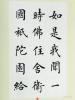 如是我聞一
時佛住舍衛
國祇陀園給